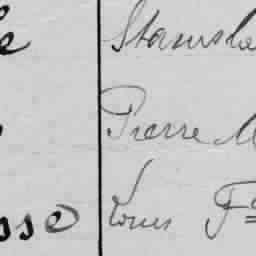 e Stanisla
Pierre M
sse Louis F